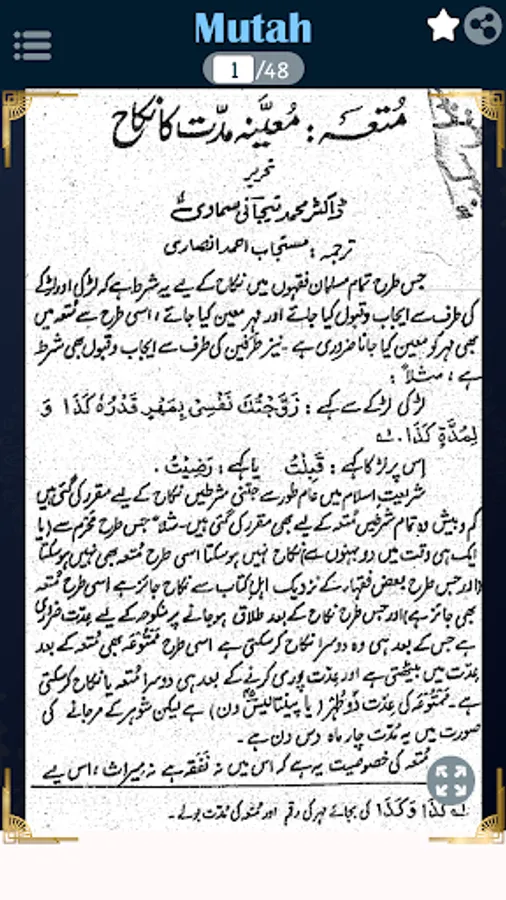 Mutah
1/48
مُتعہ : مُعیَّنہ مدّت کا نکاح
تحریر
ڈاکٹر محمد تیجانی سماوی
ترجمہ : مستجاب احمد انصاری
جس طرح تمام مسلمان فقہوں میں نکاح کے لیے یہ شرط ہے کہ لڑکی اور لڑکے
کی طرف سے ایجاب وقبول کیا جائے اور مہر معین کیا جائے ، اسی طرح سے مُتعہ میں
بھی مہر کو معین کیا جانا ضروری ہے ۔ نیز طرفین کی طرف سے ایجاب وقبول بھی شرط
ہے ، مثلاً :
لڑکی لڑکے سے کہے : زَوَّجْتُكَ نَفْسِیْ بِمَهْرٍ قَدْرُهٗ كَذَا وَ
لِمُدَّةٍ كَذَا . لہ
اِس پر لڑکا کہے : قَبِلْتُ یا کہے : رَضِیْتُ .
شریعتِ اسلام میں عام طور سے جتنی شرطیں نکاح کے لیے مقرر کی گئی ہیں
کم و بیش وہ تمام شرطیں مُتعہ کے لیے بھی مقرر کی گئی ہیں۔ مثلاً جس طرح مَحْرَم سے (یا
ایک ہی وقت میں دو بہنوں سے) نکاح نہیں ہوسکتا اسی طرح مُتعہ بھی نہیں ہوسکتا
(اور جس طرح بعض فقہاء کے نزدیک اہلِ کتاب سے نکاح جائز ہے اسی طرح مُتعہ
بھی جائز ہے) اور جس طرح نکاح کے بعد طلاق ہوجانے پر منکوحہ کے لیے عِدّت ضروری
ہے جس کے بعد ہی وہ دوسرا نکاح کرسکتی ہے اسی طرح مَمْتُوعَہ بھی مُتعہ کے بعد
عِدّت میں بیٹھتی ہے اور عِدّت پوری کرنے کے بعد ہی دوسرا مُتعہ یا نکاح کرسکتی
ہے ۔ مَمْتُوعَہ کی عِدّت دَو طُہر (یا پینتالیس دن) ہے لیکن شوہر کے مرجانے کی
صورت میں یہ مُدّت چار ماہ دس دن ہے ۔
مُتعہ کی خصوصیت یہ ہے کہ اس میں نہ نَفَقہ ہے نہ مِیراث ؛ اس لیے
لہ كَذَا وَكَذَا کی بجائے مہر کی رقم اور مُتعہ کی مُدّت بولے ۔